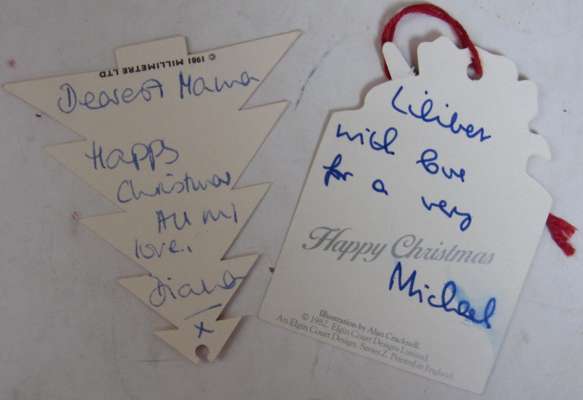 © 1981 MILLIMETRE LTD
Dearest Mama
Happy
Christmas
All my
love.
Diana
x
Lilibet
with love
for a very
Happy Christmas
Michael
Illustration by Alan Cracknell.
© 1982. Elgin Court Designs Limited.
An Elgin Court Design. Series Z. Printed in England.